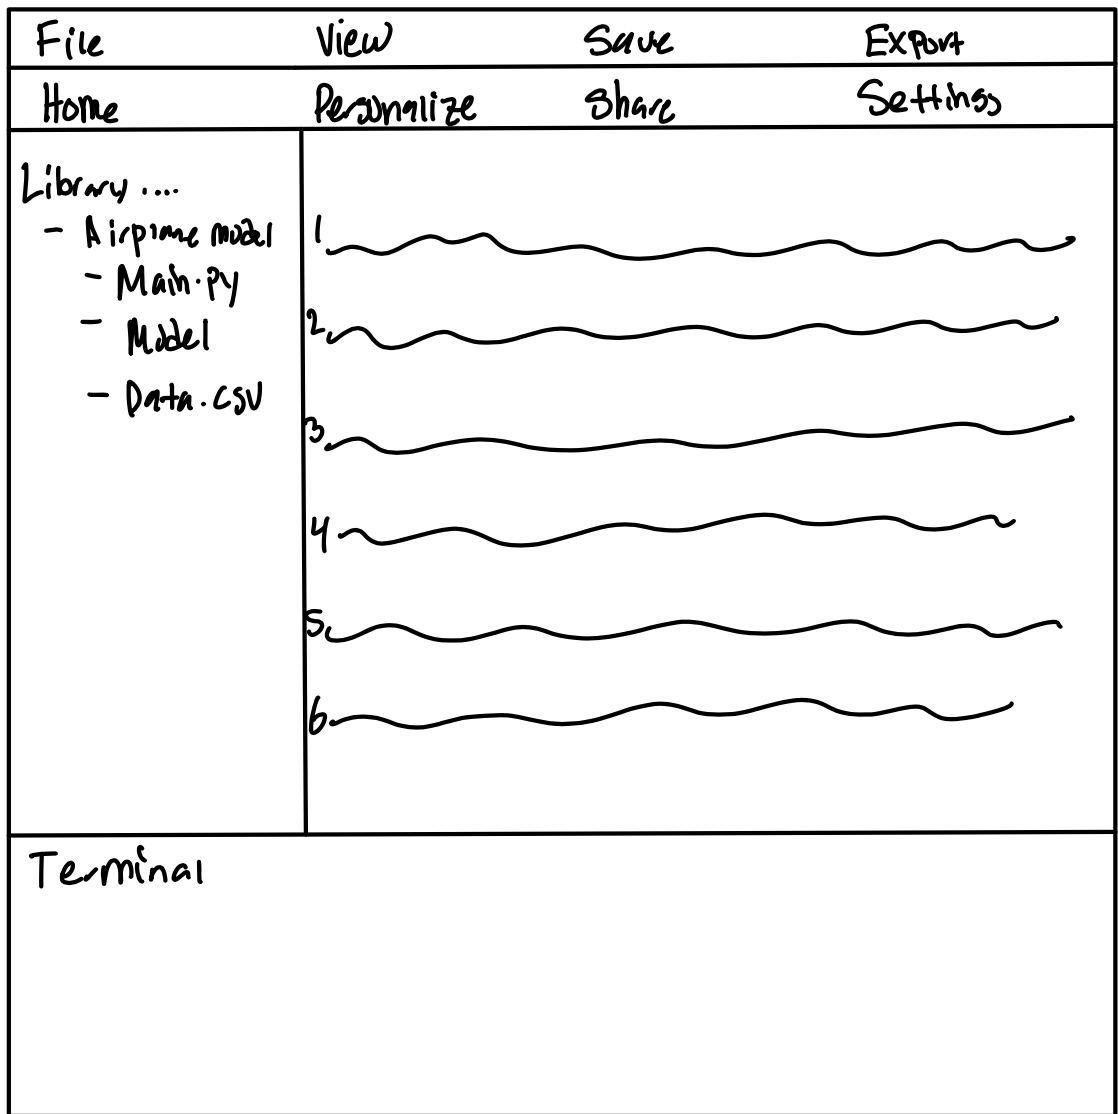 File View Save Export
Home Personalize Share Settings
Library ....
- Airplane model
- Main.py
- Model
- Data.csv
1
2
3
4
5
6
Terminal